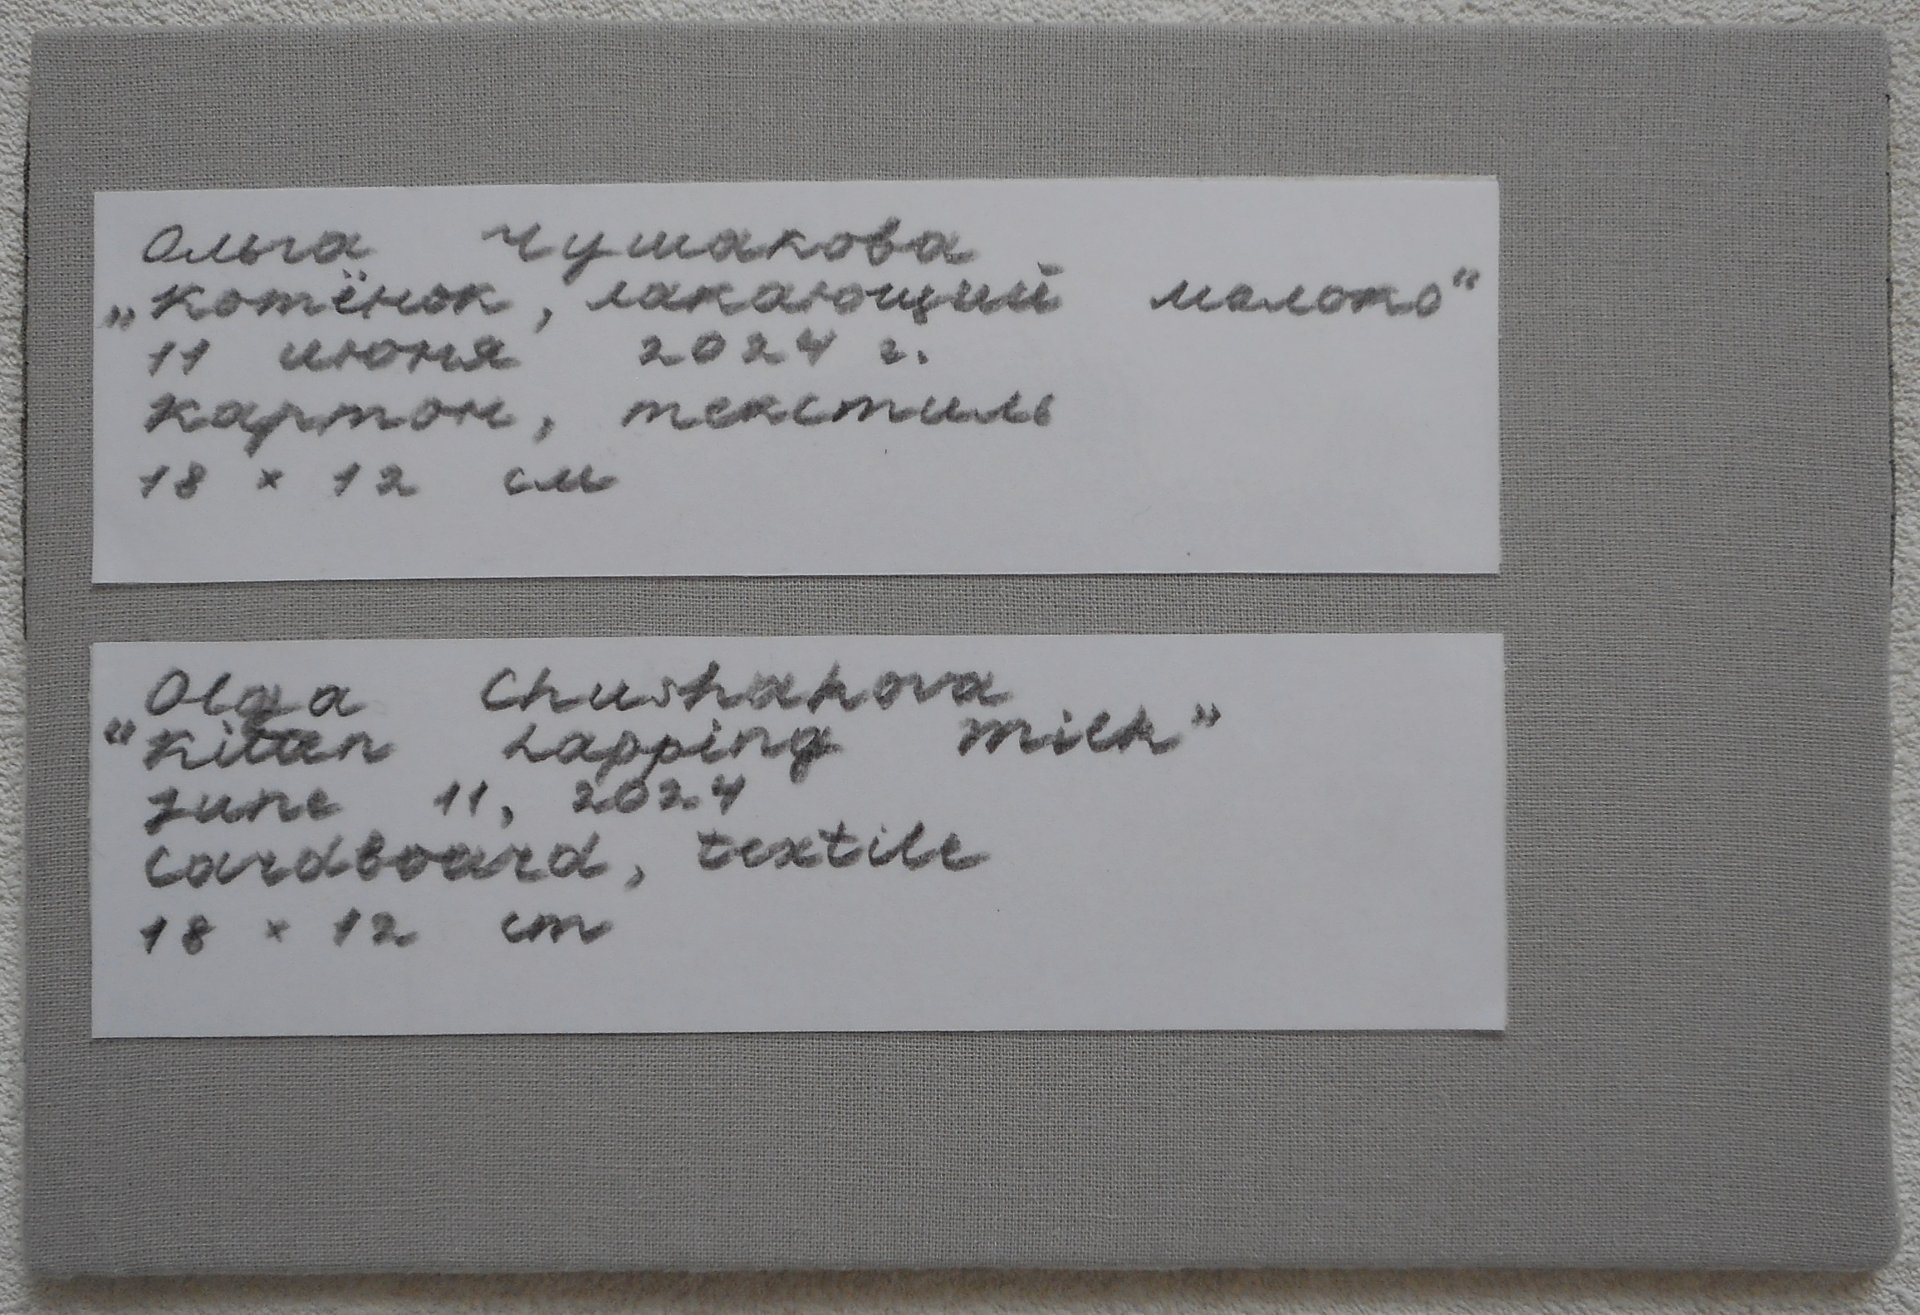 Ольга Чушакова
„Котёнок, лакающий молоко“
11 июня 2024 г.
Картон, текстиль
18 × 12 см
Olga Chushakova
“Kitten Lapping Milk”
June 11, 2024
Cardboard, textile
18 × 12 cm